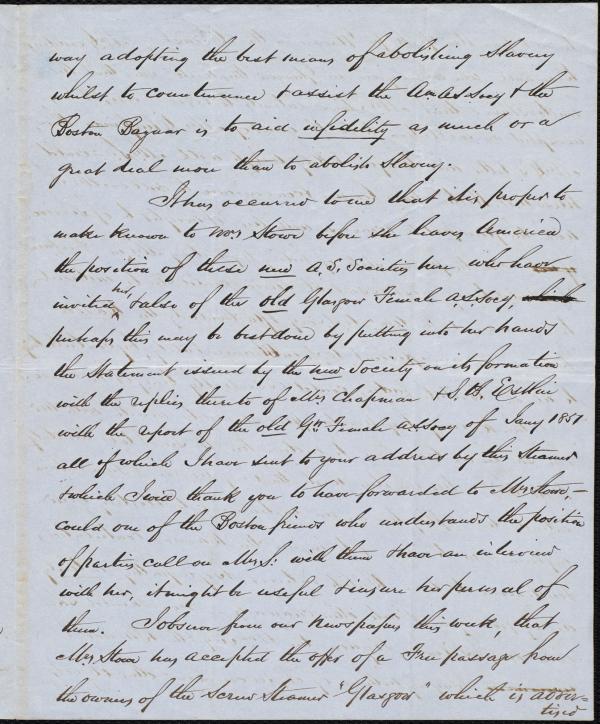 way adopting the best means of abolishing Slavery
whilst to countenance & assist the Am. A.S. Socy & the
Boston Bazaar is to aid infidelity as much or a
great deal more than to abolish Slavery.
It has occurred to me that it is proper to
make known to Mrs Stowe before she leaves America
the position of these new A.S. Societies here who have
invited her, & also of the old Glasgow Female A.S. Socy, which
perhaps this may be best done by putting into her hands
the Statement issued by the new Society on its formation
with the replies thereto of Mrs Chapman & S. B.
with the report of the old Gw Female A.S. Socy of Jany 1851
all of which I have sent to your address by this Steamer
& which I wod thank you to have forwarded to Mrs Stowe, –
could one of the Boston friends who understands the position
of parties call on Mrs S: with them & have an interview
with her, it might be useful & insure her perusal of
them. I observe from our newspapers this week, that
Mrs Stowe has accepted the offer of a Free passage from
the owners of the Screw Steamer "Glasgow" which is adver=
tised